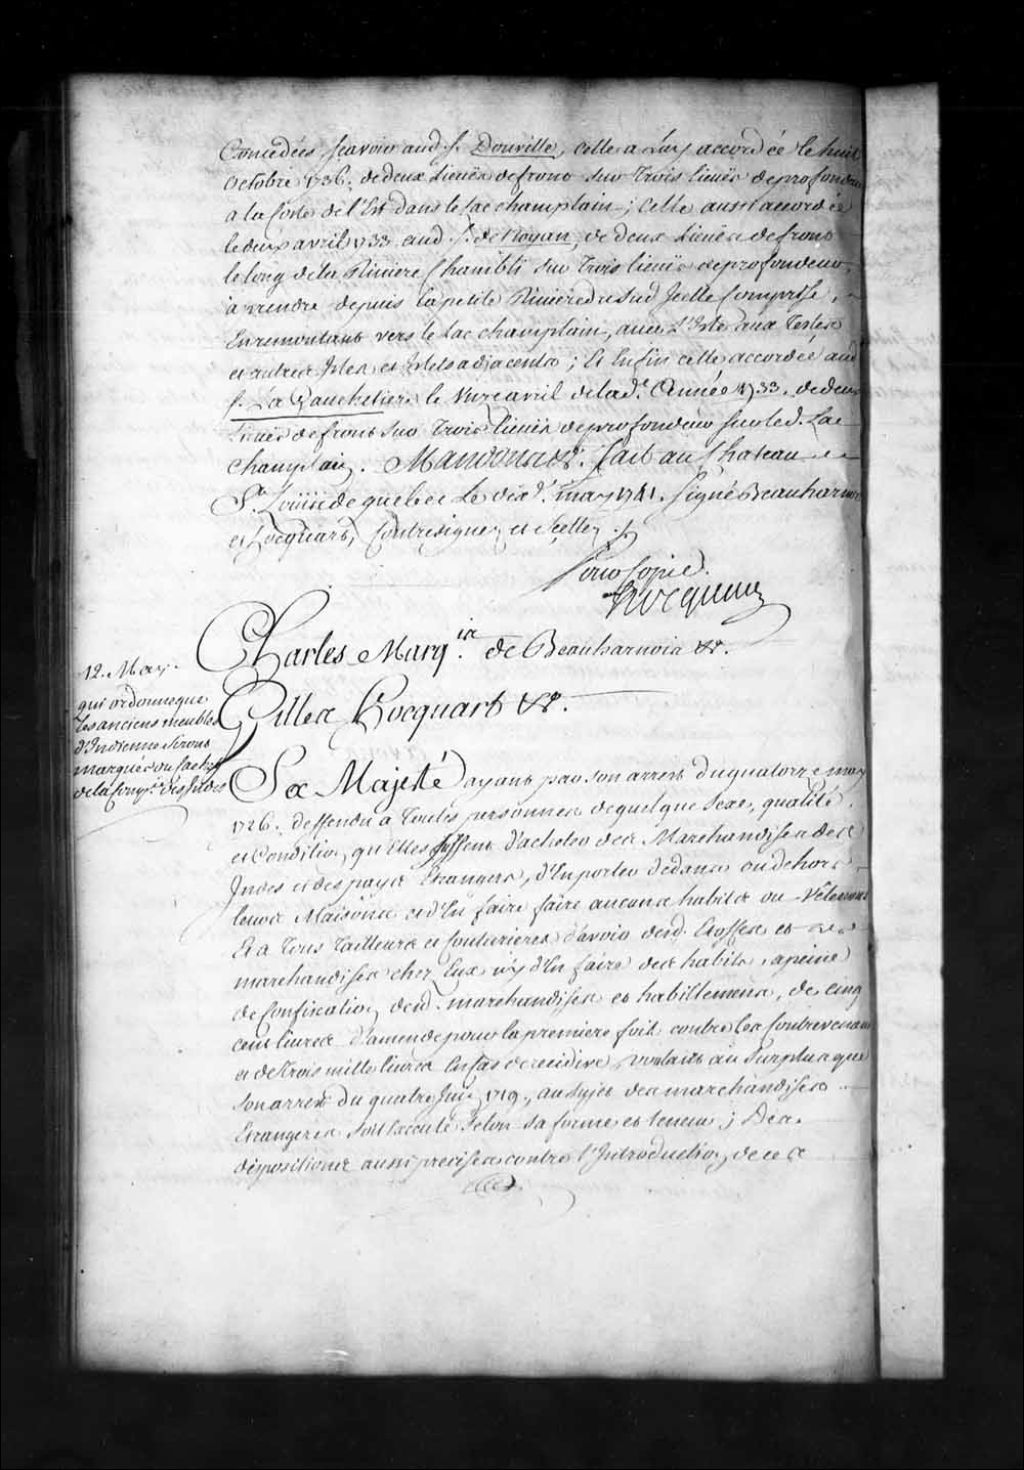 Concedées, scavoir aud. S. Douville, celle a Luy accordée le huit
Octobre 1736. de deux Lieuës de front sur trois lieuës de profondeur
a la Coste de l'Est dans le Lac champlain; Celle aussi accordée
le deux avril 1733. aud. S. de Noyan, de deux Lieuës de front
le long de la Riviere Chambli sur trois lieuës de profondeur,
a prendre depuis la petite Riviere du Sud Jcelle Comprise,
En remontant vers le Lac champlain, avec L'Isle aux Testes
et autres Isles et Islets adjacents; Et Enfin celle accordée aud.
S. La Gauchetiere le avril de lad.e Année 1733. de deux
Lieuës de front sur trois lieuës de profondeur sur led. Lac
Champlain. Mandons &. fait au Chateau
St. Loüis de quebec Le dixe. may 1741. Signé Beauharnois
et Hocquart, Contresigné et Scellé ./.
Pour Copie.
Hocquart
12. May.
qui ordonne que
les anciens meubles
d'Indienne seront
marqués du cachet
de la Comp.e des Indes
Charles Marq.is de Beauharnois &a.
Gilles Hocquart &a.
Sa Majesté ayant par son arrest du quatorze may
1726. deffendu a toutes personnes de quelque Sexe, qualité
et Condition qu'Elles fussent d'acheter des Marchandises des
Jndes et des pays Etrangers, d'En porter dedans ou dehors
leurs Maisons et d'En faire faire aucuns habits ou Vêtements
Et a tous tailleurs et Couturieres d'avoir desd. Etoffes et
marchandises chez Eux ny d'En faire des habits, apeine
de Confiscation desd. marchandises et habillemens, de cinq
cent livres d'amende pour la premiere fois contre les Contrevenans
et de trois mille livres En cas de recidive, voulant au Surplus que
son arrest du quatre Juin 1719. au sujet des marchandises
Etrangeres soit Executé selon sa forme et teneur; Des
dispositions aussi precises contre l'Introduction de ces